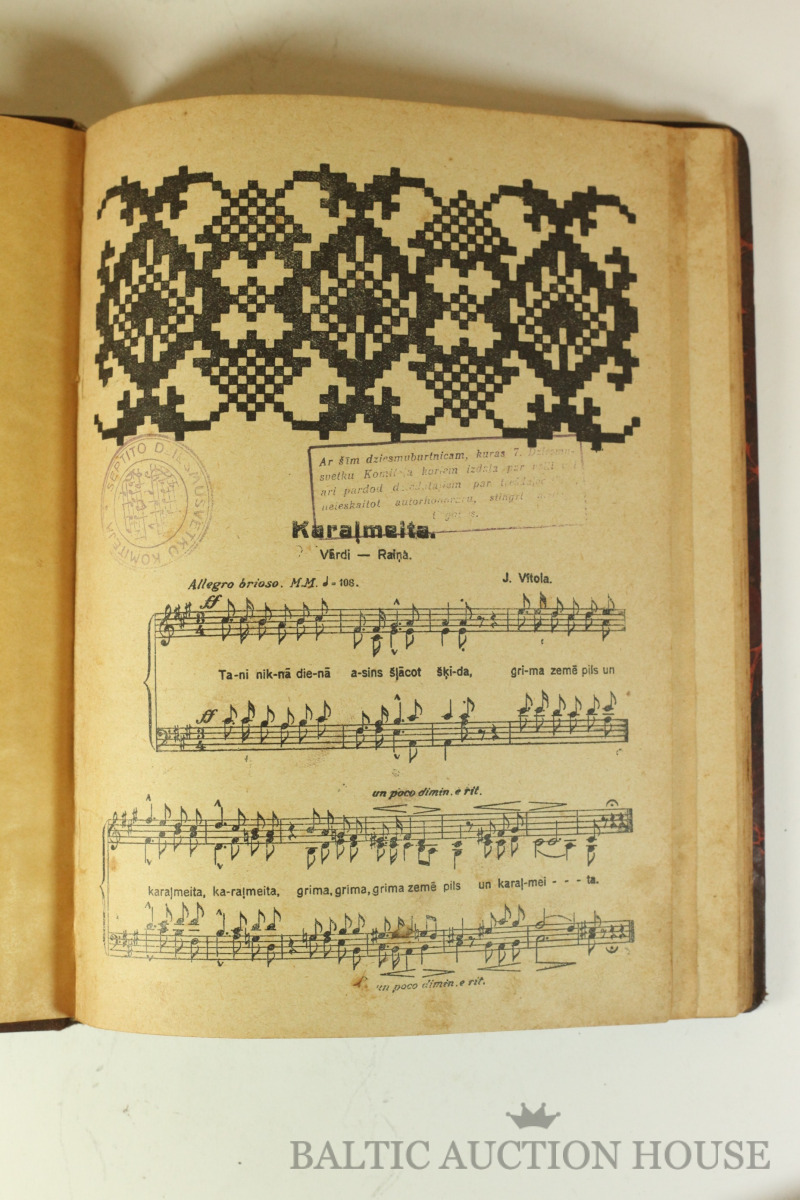 SEPTĪTO DZIESMUSVĒTKU KOMITEJA
Ar šīm dziesmuburtnīcam, kuras 7. Dziesmu-
svētku Komiteja koriem izdala par
ari pardod par
neieskaitot autorhonoraru, stingri
Karaļmeita.
Vārdi — Raiņa.
Allegro brioso. M.M. ♩=108.
J. Vītola.
ff
Ta-ni nik-nā die-nā a-sins šļācot šķi-da, gri-ma zemē pils un
ff
un poco dimin. e rit.
karaļmeita, ka-raļmeita, grima, grima, grima zemē pils un karaļ-mei - - - ta.
un poco dimin. e rit.
BALTIC AUCTION HOUSE